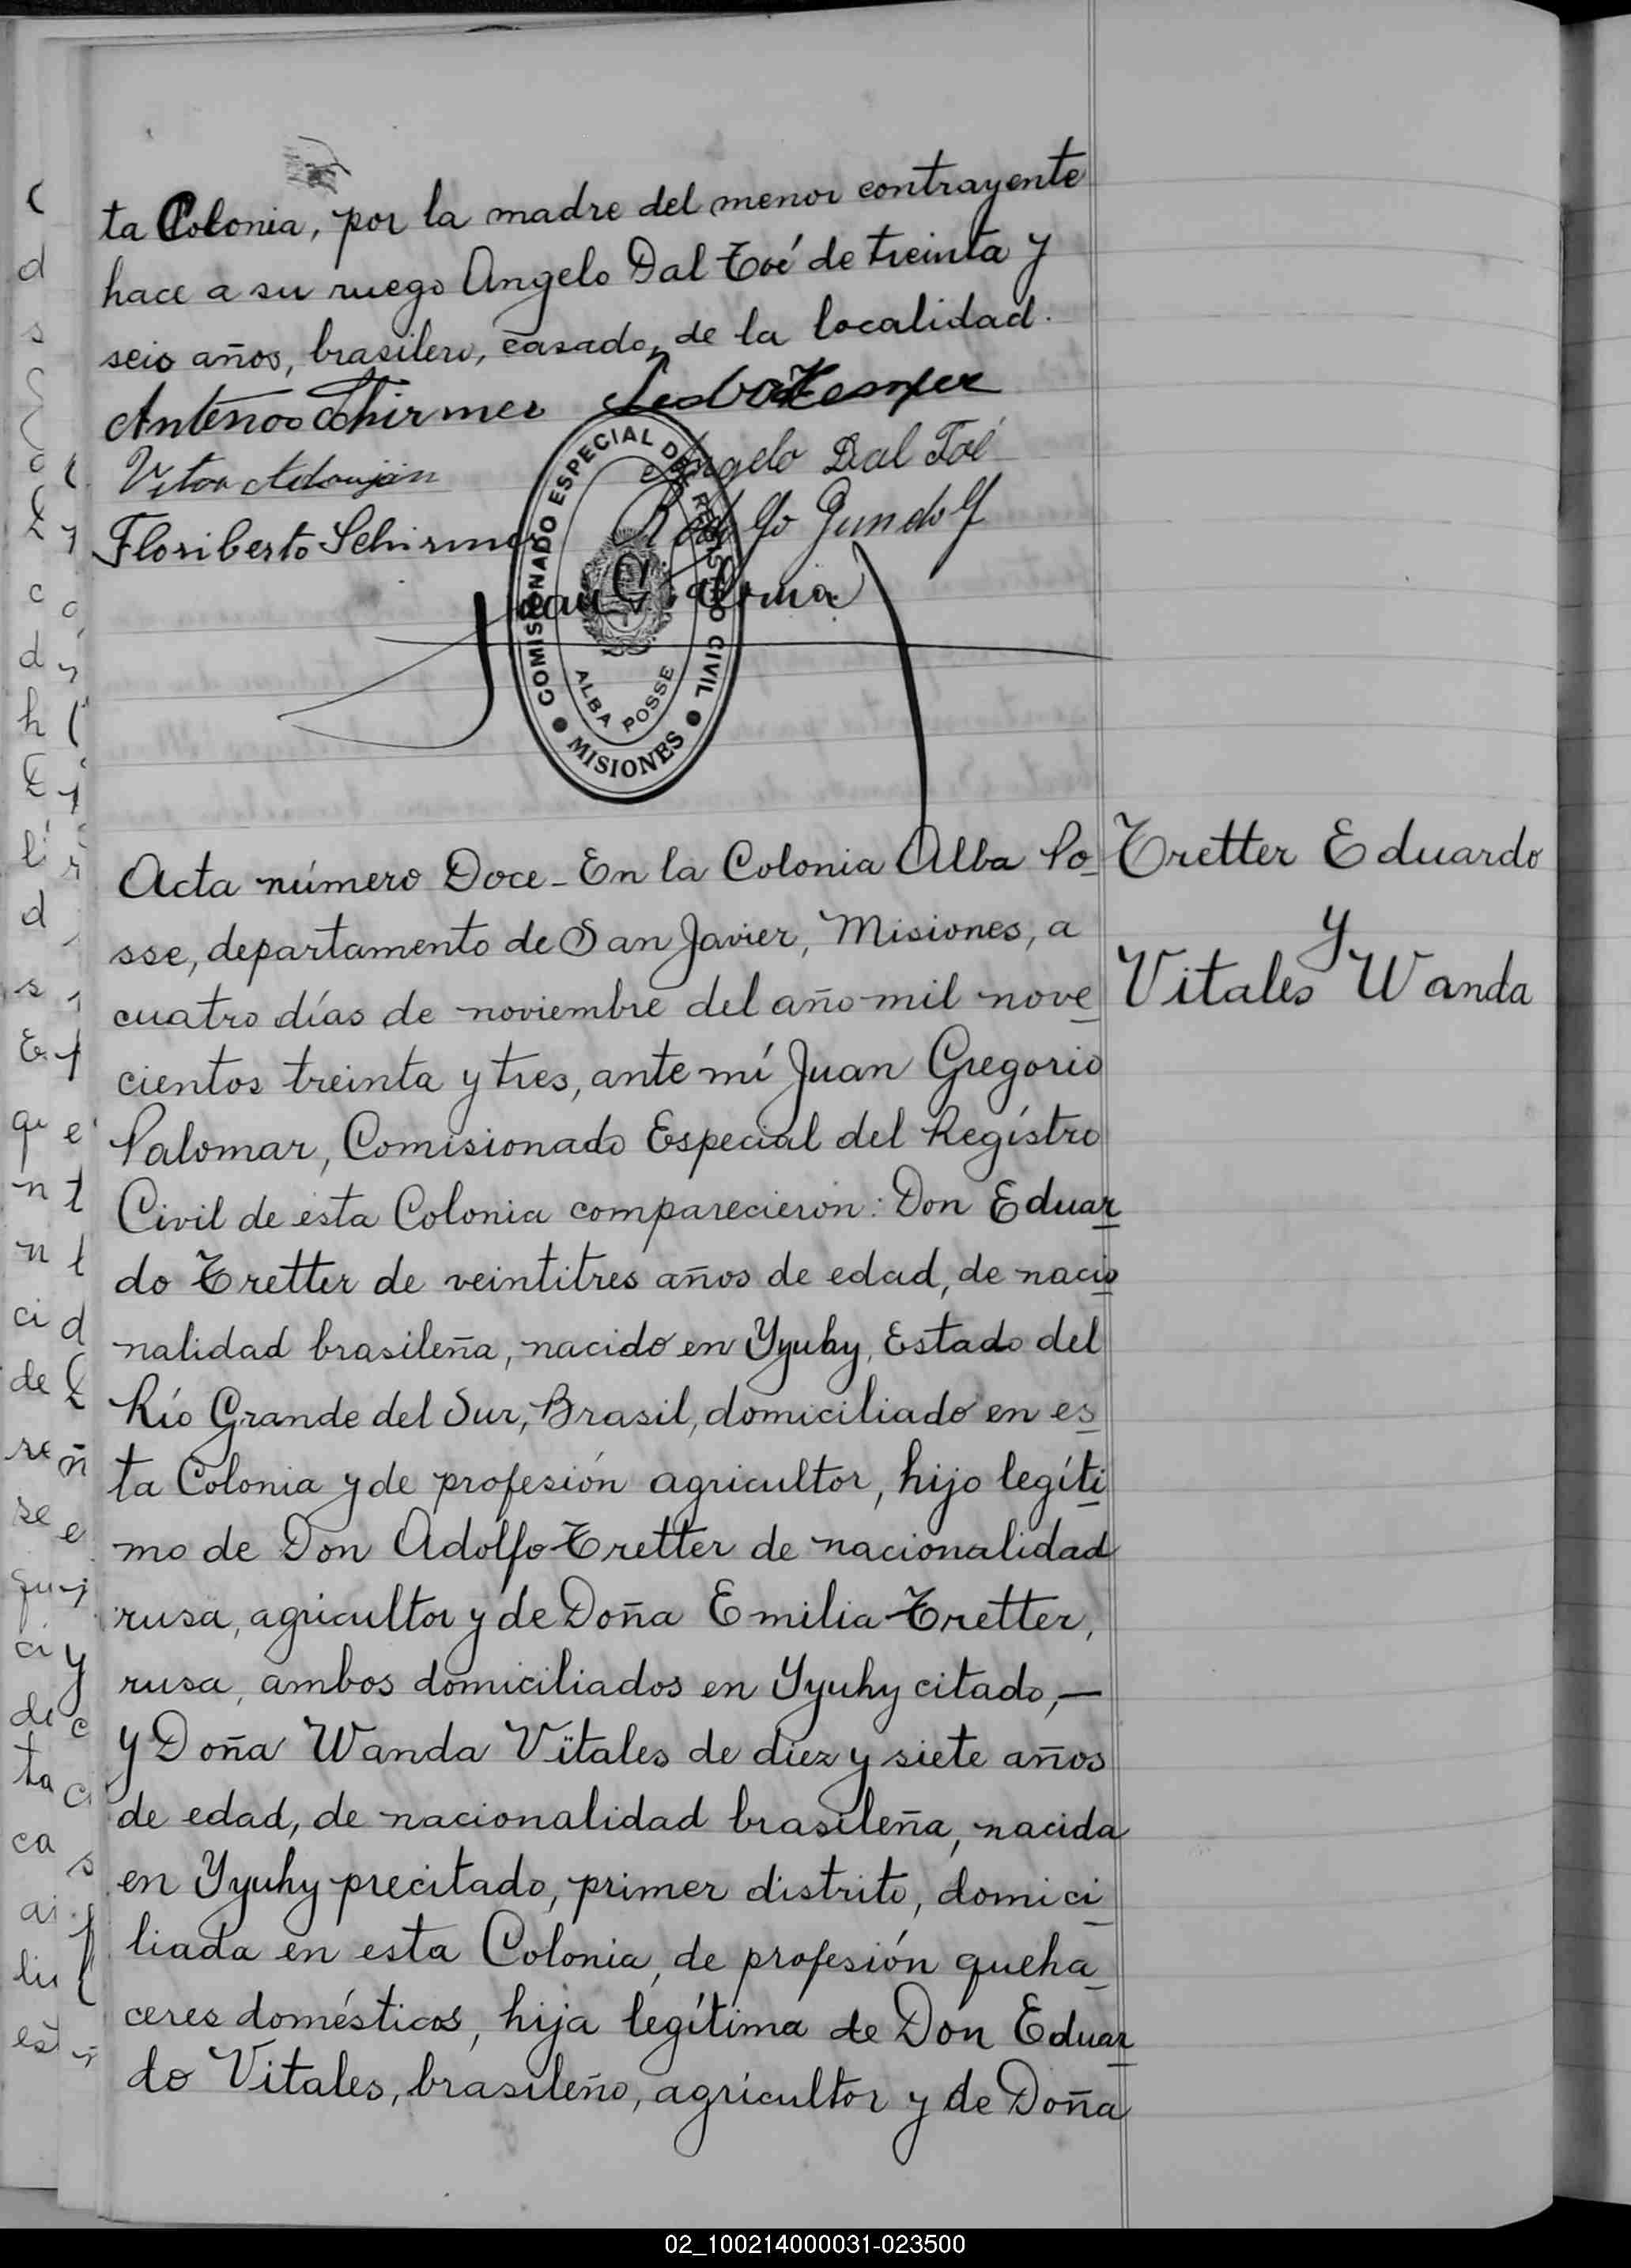 ta Colonia, por la madre del menor contrayente
hace a su ruego Angelo Dal Toé de treinta y
seis años, brasilero, casado, de la localidad.
Antenos Schirmer
Angelo Dal Toé
Vitor
Rodolfo Gundolf
Floriberto Schirmer
Juan G. Palomar
COMISIONADO ESPECIAL DE REGISTRO CIVIL
ALBA POSSE
MISIONES
Acta número Doce - En la Colonia Alba Po
Tretter Eduardo
sse, departamento de San Javier, Misiones, a
y
cuatro días de noviembre del año mil nove
Vitales Wanda
cientos treinta y tres, ante mí Juan Gregorio
Palomar, Comisionado Especial del Registro
Civil de esta Colonia comparecieron: Don Eduar
do Tretter de veintitres años de edad, de nacio
nalidad brasileña, nacido en Yyuhy, Estado del
Río Grande del Sur, Brasil, domiciliado en es
ta Colonia y de profesión agricultor, hijo legíti
mo de Don Adolfo Tretter de nacionalidad
rusa, agricultor y de Doña Emilia Tretter,
rusa, ambos domiciliados en Yyuhy citado, —
y Doña Wanda Vitales de diez y siete años
de edad, de nacionalidad brasileña, nacida
en Yyuhy precitado, primer distrito, domici
liada en esta Colonia, de profesión queha
ceres domésticos, hija legítima de Don Eduar
do Vitales, brasileño, agricultor y de Doña
02_100214000031-023500